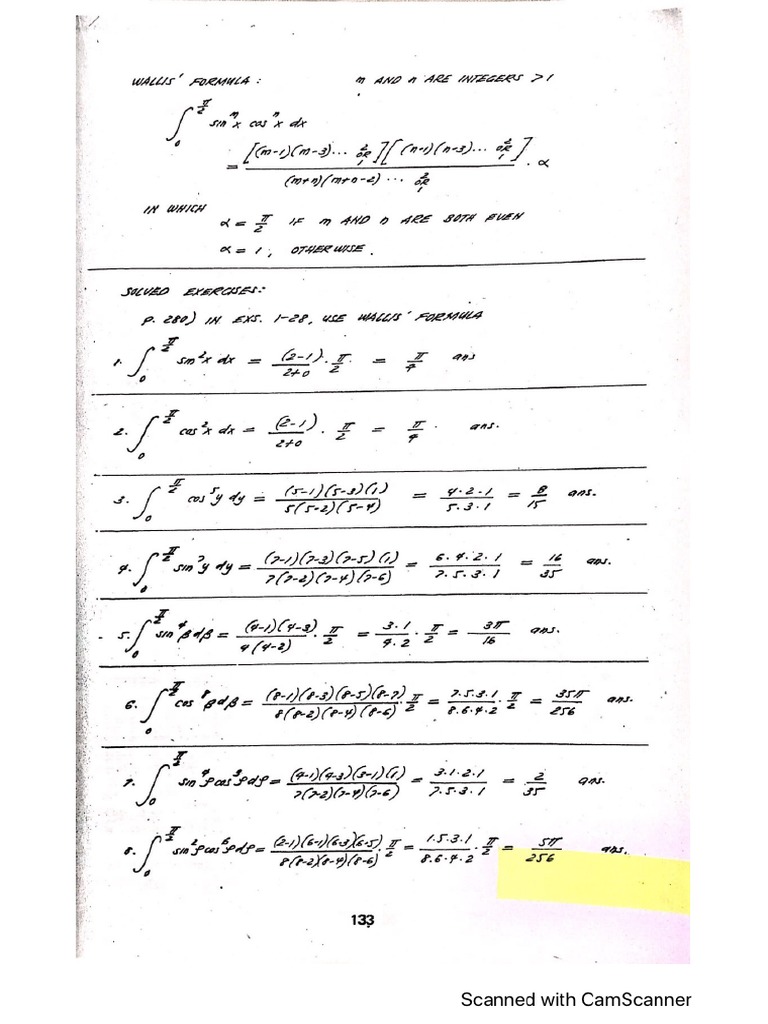 WALLIS' FORMULA: m AND n ARE INTEGERS >1
∫₀^(π/2) sinᵐx cosⁿx dx
= [(m-1)(m-3)... 2 OR 1][(n-1)(n-3)... 2 OR 1] / (m+n)(m+n-2) ... 2 OR 1 · α
IN WHICH
α = π/2 IF m AND n ARE BOTH EVEN
α = 1, OTHERWISE.
SOLVED EXERCISES:
P. 280) IN EXS. 1-28, USE WALLIS' FORMULA
1. ∫₀^(π/2) sin²x dx = (2-1)/(2+0) · π/2 = π/4 ans
2. ∫₀^(π/2) cos²x dx = (2-1)/(2+0) · π/2 = π/4 · ans.
3. ∫₀^(π/2) cos⁵y dy = (5-1)(5-3)(1) / 5(5-2)(5-4) = 4·2·1 / 5.3.1 = 8/15 ans.
4. ∫₀^(π/2) sin⁷y dy = (7-1)(7-3)(7-5)(1) / 7(7-2)(7-4)(7-6) = 6.4.2.1 / 7.5.3.1 = 16/35 ans.
5. ∫₀^(π/2) sin⁴β dβ = (4-1)(4-3) / 4(4-2) · π/2 = 3.1 / 4.2 · π/2 = 3π/16 ans.
6. ∫₀^(π/2) cos⁸β dβ = (8-1)(8-3)(8-5)(8-7) / 8(8-2)(8-4)(8-6) · π/2 = 7.5.3.1 / 8.6.4.2 · π/2 = 35π/256 ans.
7. ∫₀^(π/2) sin⁴ρ cos³ρ dρ = (4-1)(4-3)(3-1)(1) / 7(7-2)(7-4)(7-6) = 3.1.2.1 / 7.5.3.1 = 2/35 ans.
8. ∫₀^(π/2) sin²ρ cos⁶ρ dρ = (2-1)(6-1)(6-3)(6-5) / 8(8-2)(8-4)(8-6) · π/2 = 1.5.3.1 / 8.6.4.2 · π/2 = 5π/256 ans.
133
Scanned with CamScanner